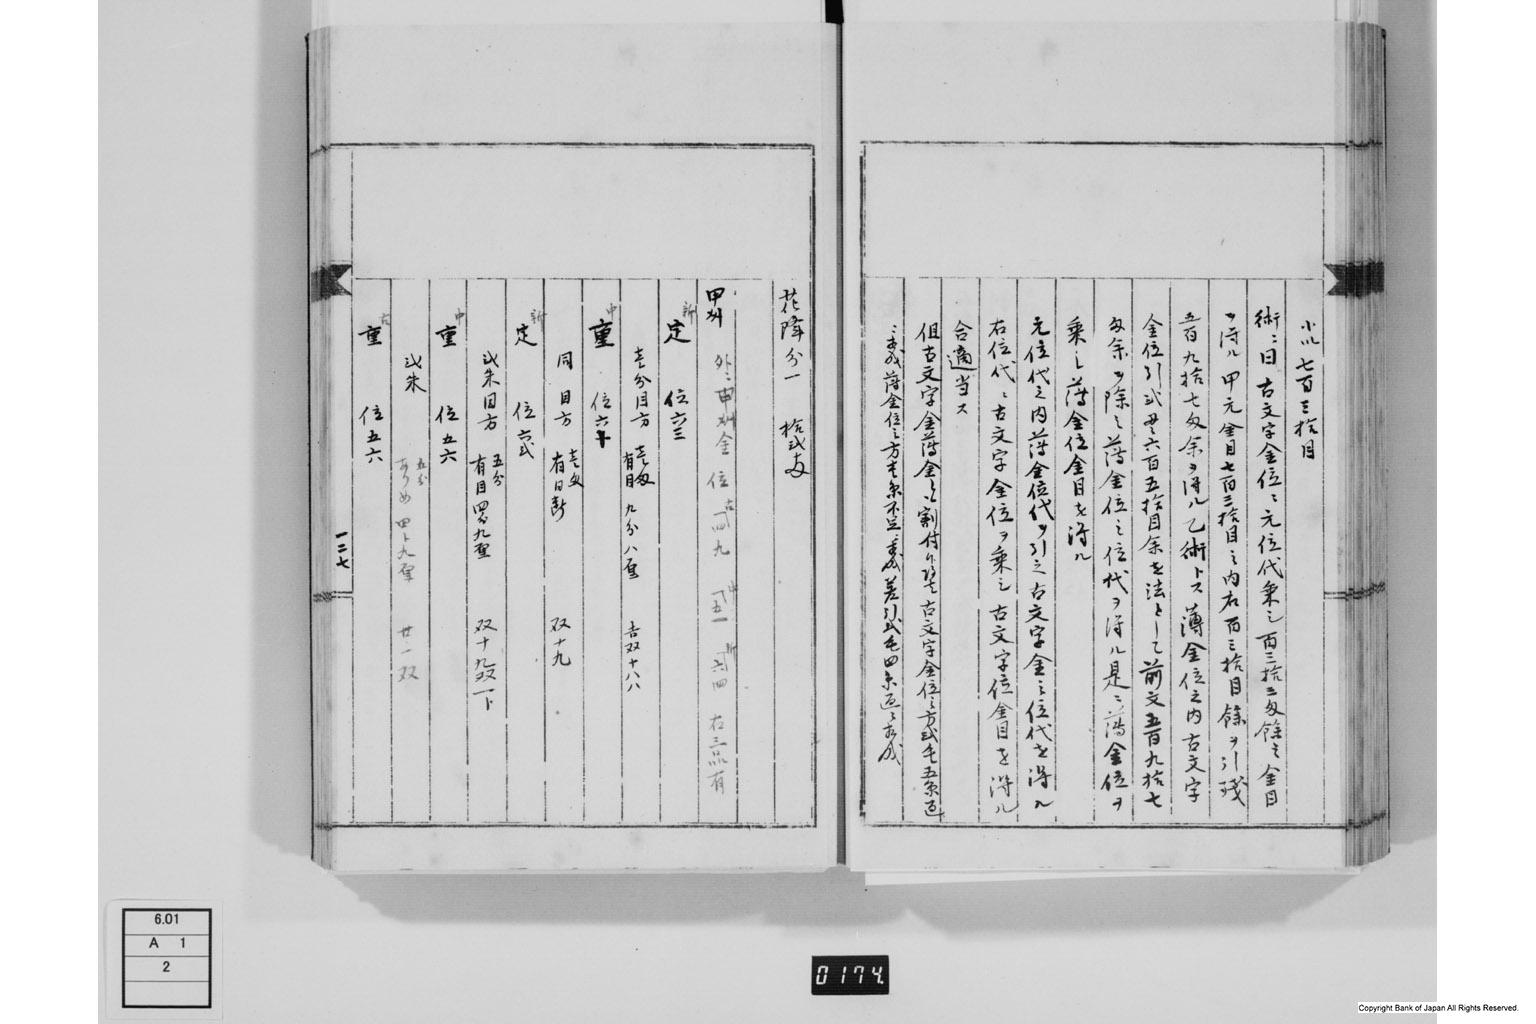 小以 七百三拾目
術ニ曰 古文字金位ニ元位代乗之百三拾三匁餘之金目
ヲ得ル 甲元金目七百三拾目之内右百三拾目餘ヲ引残
五百九拾七匁余ヲ得ル乙術トス 薄金位之内古文字
金位引 六百五拾目余を法として前文五百九拾七
匁余ヲ除之薄金位之位代ヲ得ル是ニ薄金位ヲ
乗之薄金位金目を得ル
元位代之内薄金位代ヲ引之古文字金之位代を得ル
右位代ニ古文字金位ヲ乗之古文字位金目を得ル
合適当ス
但古文字金薄金 割付 古文字金位之方弐毛五糸
薄金位之方 糸不足 差引弐毛四糸
花降分一 拾弐匁
甲州 外ニ甲州金 位 古 四九 中 五一 新 六四 右三品有
新 定 位六三
壱分目方 壱匁 有目 九分八厘 双十八八
中 重 位六十
同 目方 壱匁 有目 双十九
新 定 位六弐
弐朱目方 五分 有目 四分九厘 双十九双一下
中 重 位五六
弐朱 五分 四分九厘 廿一双
古 重 位五六
一二七
6.01
A 1
2
0174
Copyright Bank of Japan All Rights Reserved.